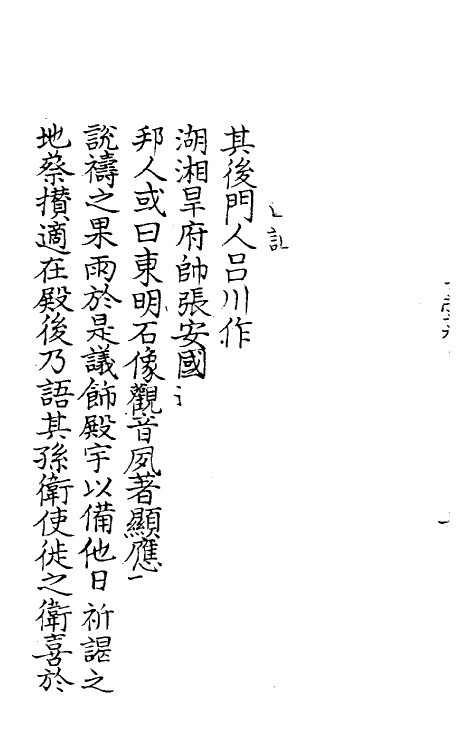 其後門人呂川作
湖湘旱府帥張安國
邦人或曰東明石像觀音夙著顯應
說禱之果雨於是議飾殿宇以備他日祈謁之
地蔡攅適在殿後乃語其孫衛使徙之衛喜於